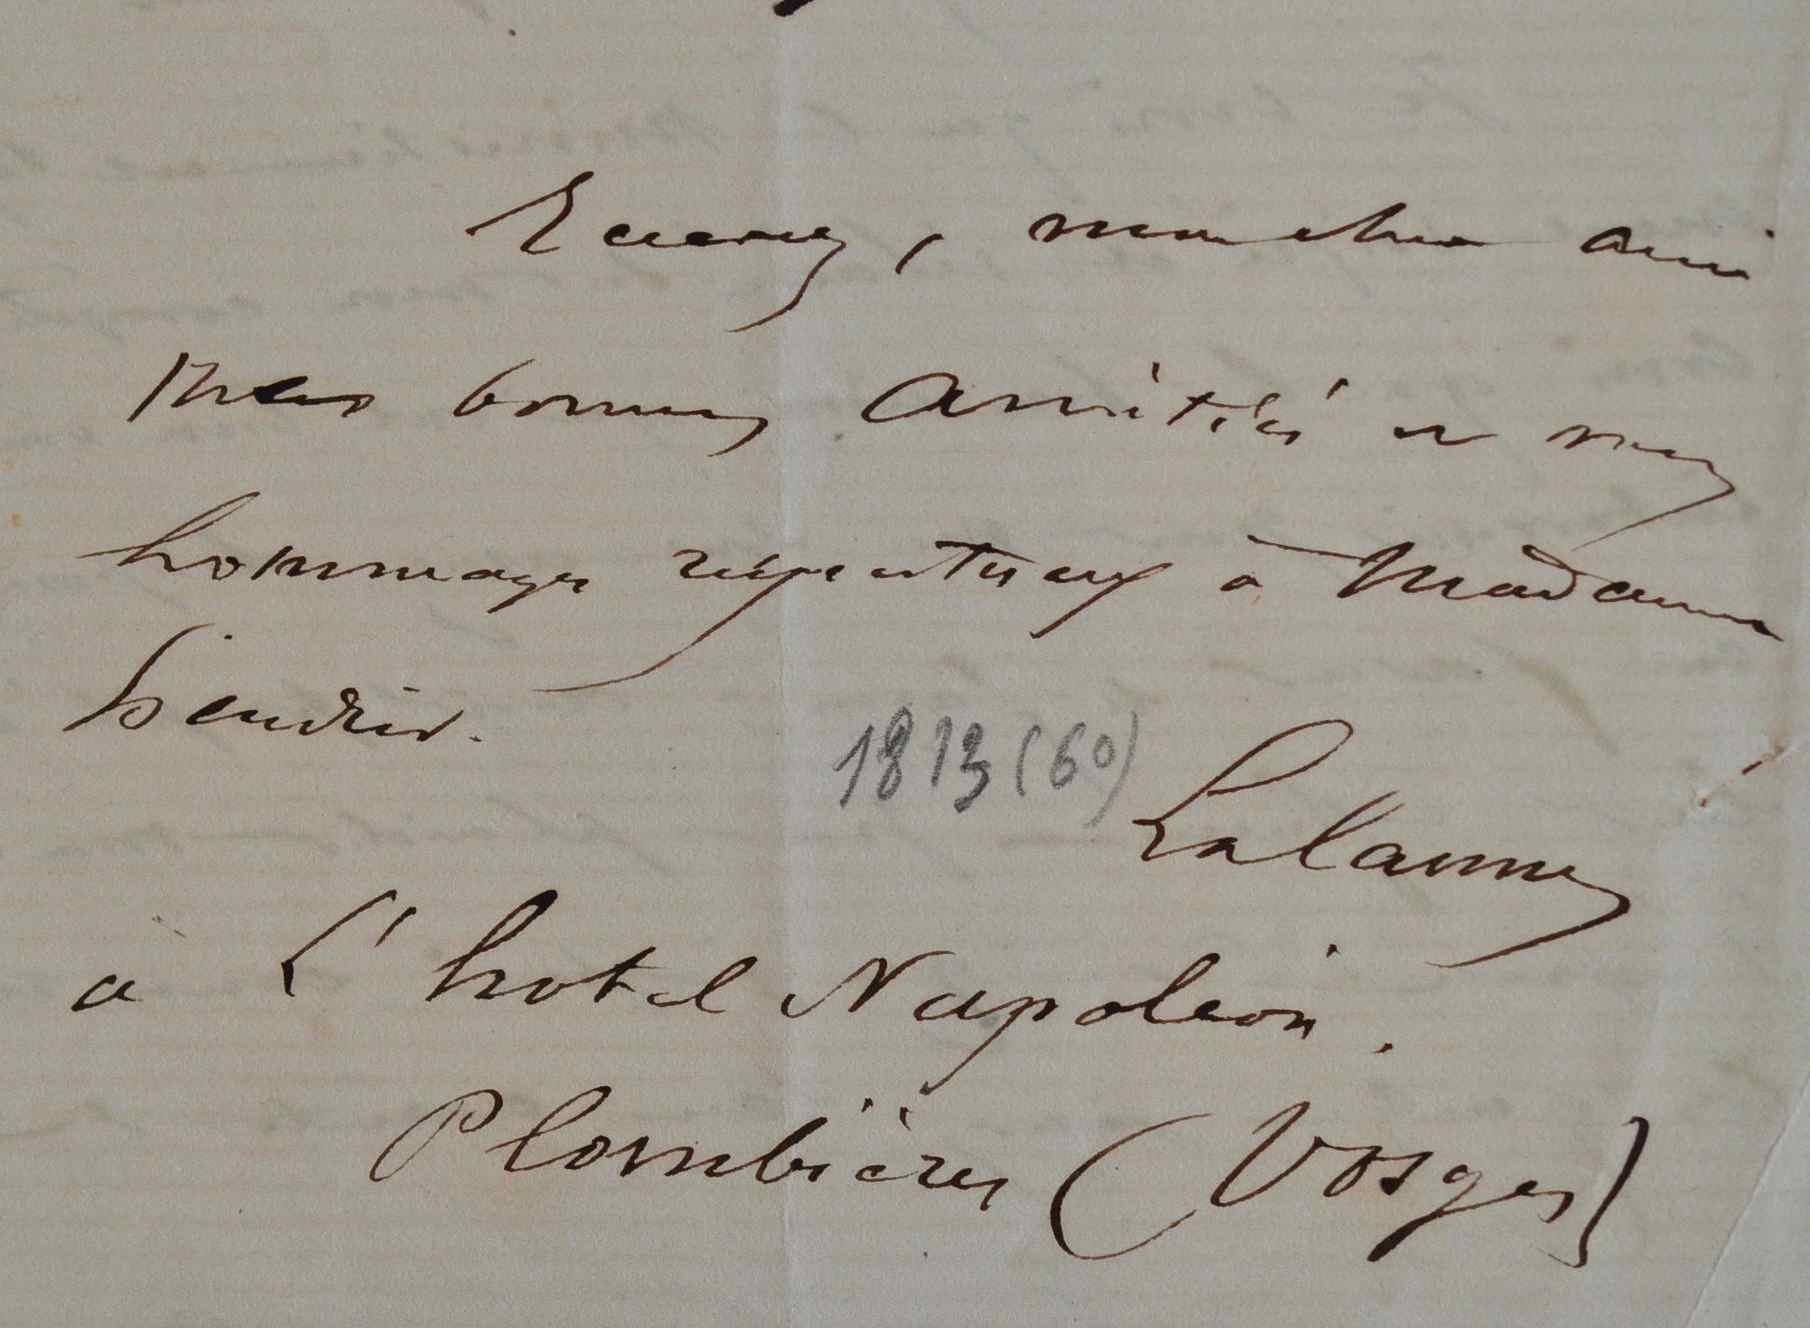 Recevez, mon cher ami
mes bonnes amitiés et mes
hommages respectueux à Madame
1813 (60)
Lalanne
à L'hotel Napoléon.
Plombières (Vosges)